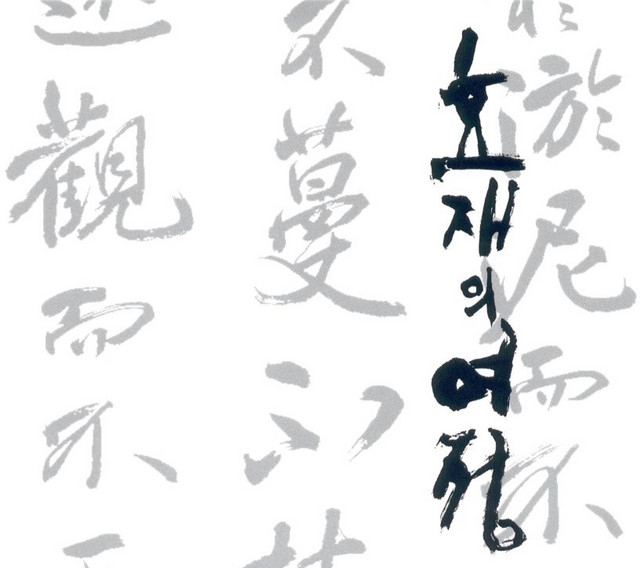 於泥而不
효재의 여정
不蔓不
觀而不